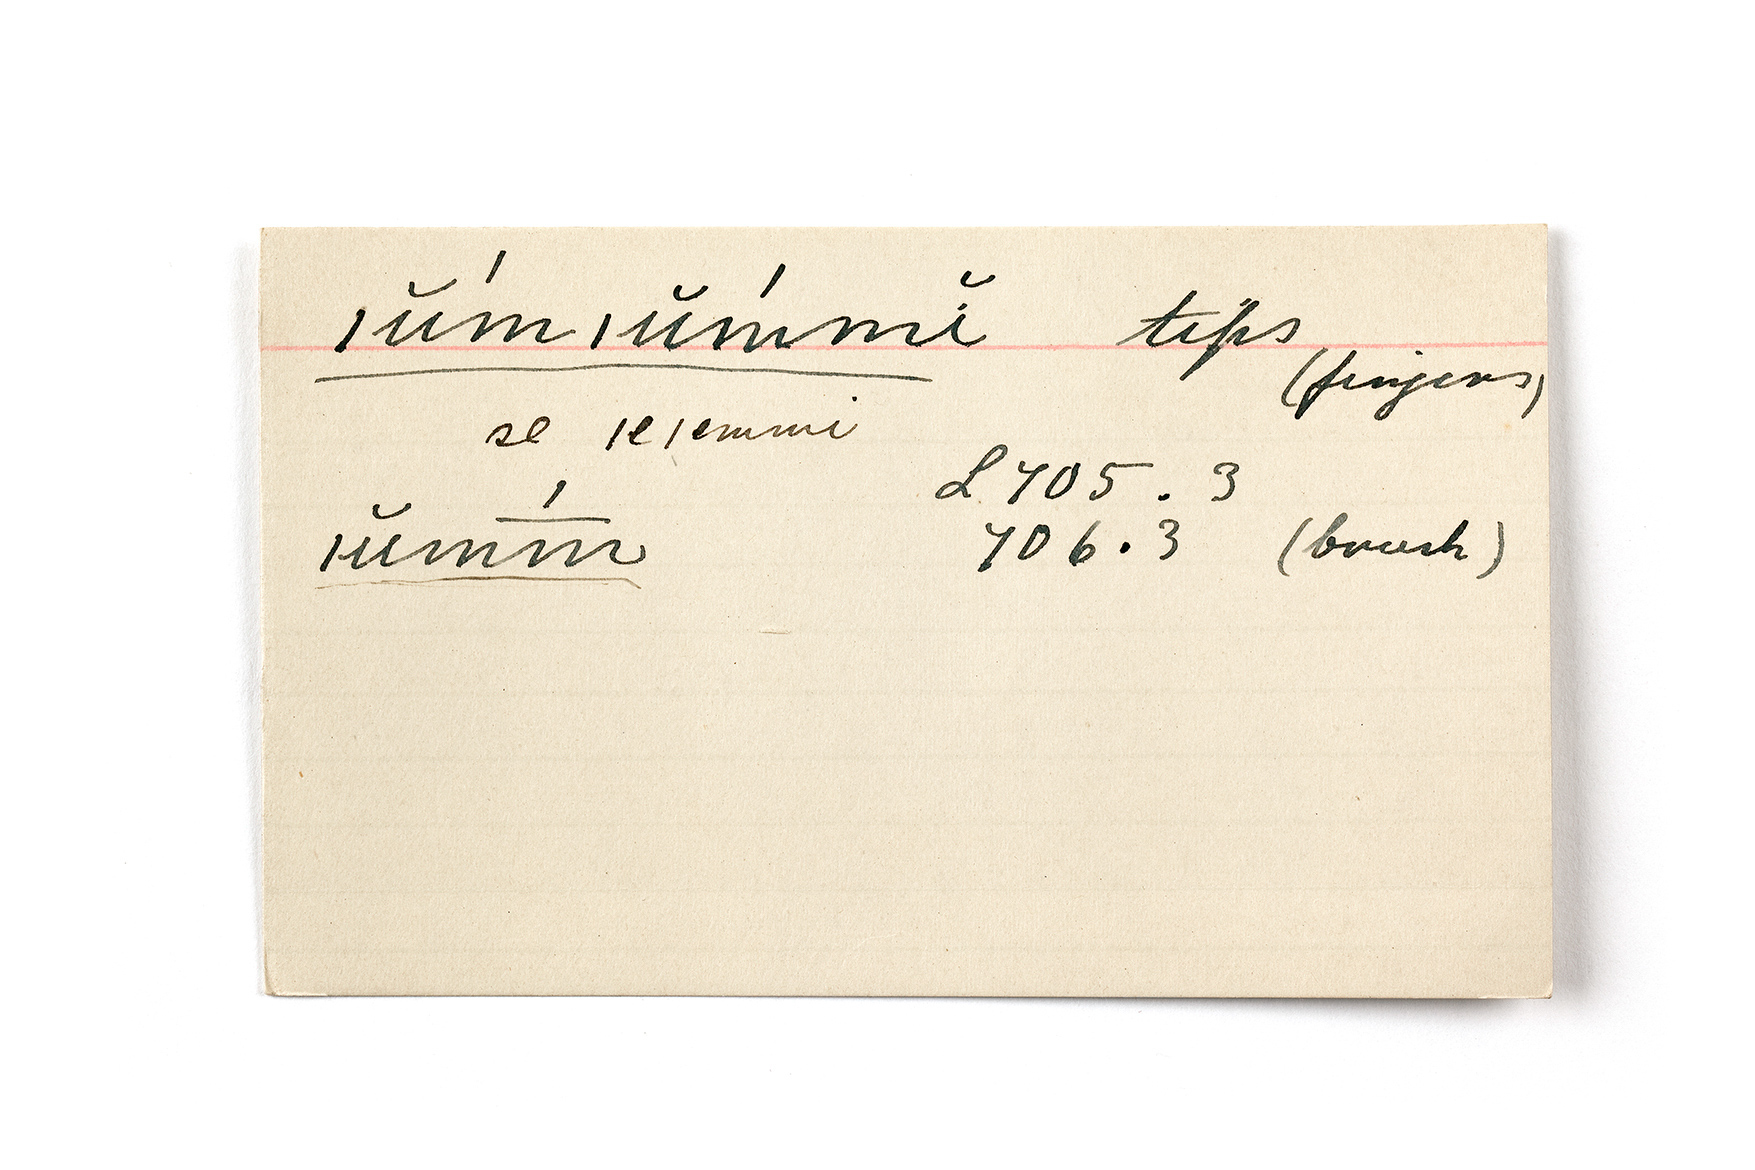 ıŭḿıŭḿmĭ tips
(fingers)
se ıeıemmi
L 705.3
ıŭmḿ 706.3 (brush)